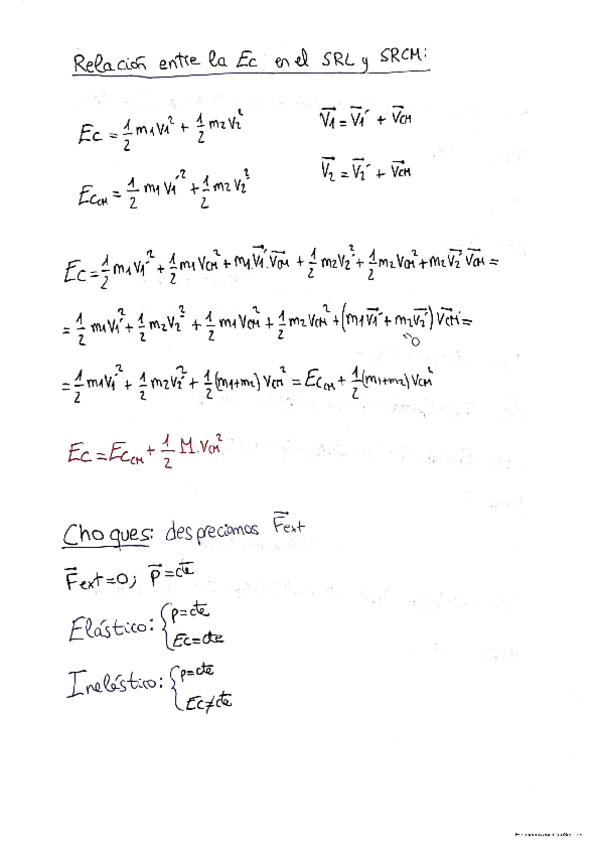 Relación entre la Ec en el SRL y SRCM:
Ec = 1/2 m1 V1² + 1/2 m2 V2²    V⃗1 = V⃗1' + V⃗CM
EcCM = 1/2 m1 V1'² + 1/2 m2 V2'²    V⃗2 = V⃗2' + V⃗CM
Ec = 1/2 m1 V1'² + 1/2 m1 VCM² + m1 V⃗1'·V⃗CM + 1/2 m2 V2'² + 1/2 m2 VCM² + m2 V⃗2' V⃗CM =
= 1/2 m1 V1'² + 1/2 m2 V2'² + 1/2 m1 VCM² + 1/2 m2 VCM² + (m1 V⃗1' + m2 V⃗2') V⃗CM =
"0
= 1/2 m1 V1'² + 1/2 m2 V2'² + 1/2 (m1+m2) VCM² = EcCM + 1/2 (m1+m2) VCM²
Ec = EcCM + 1/2 M·VCM²
Choques: despreciamos F⃗ext
F⃗ext = 0; P⃗ = cte
Elástico: { p = cte
Ec = cte
Inelástico: { p = cte
Ec ≠ cte